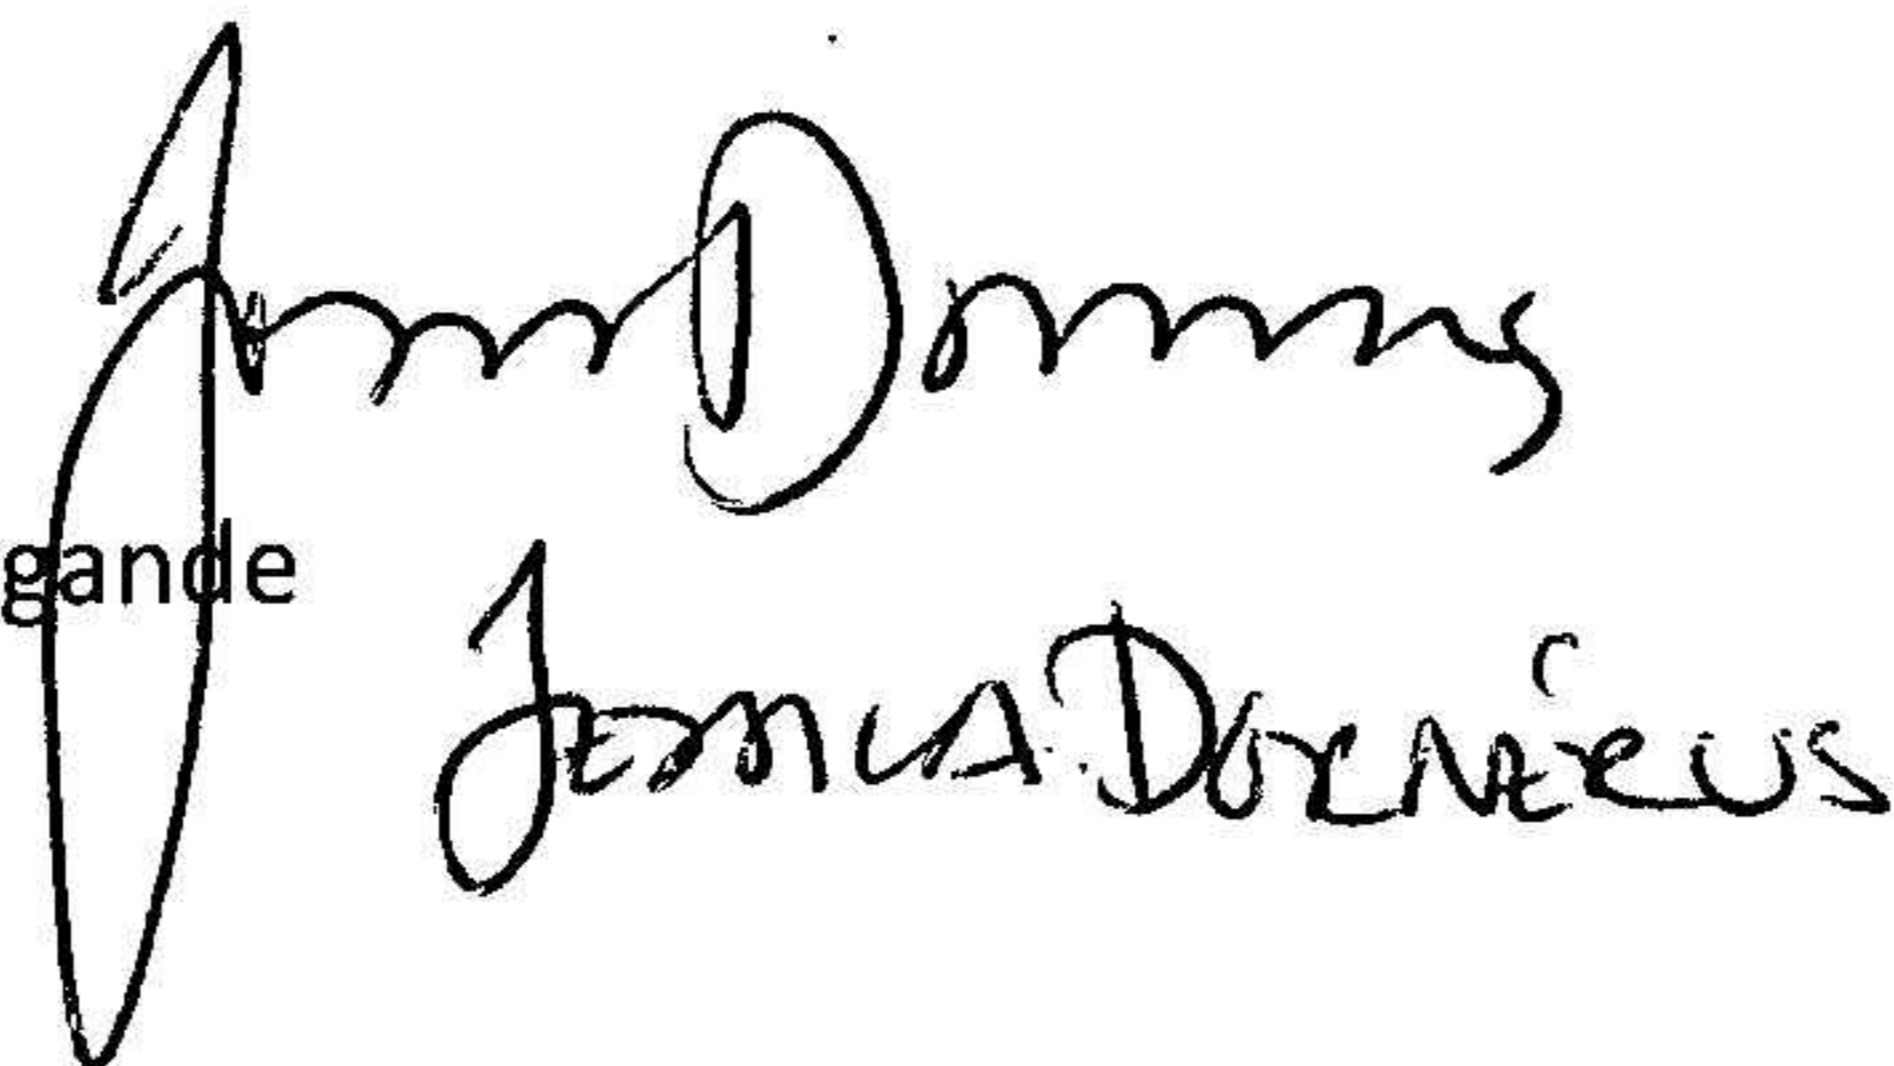 gande
Jessica Dornérus